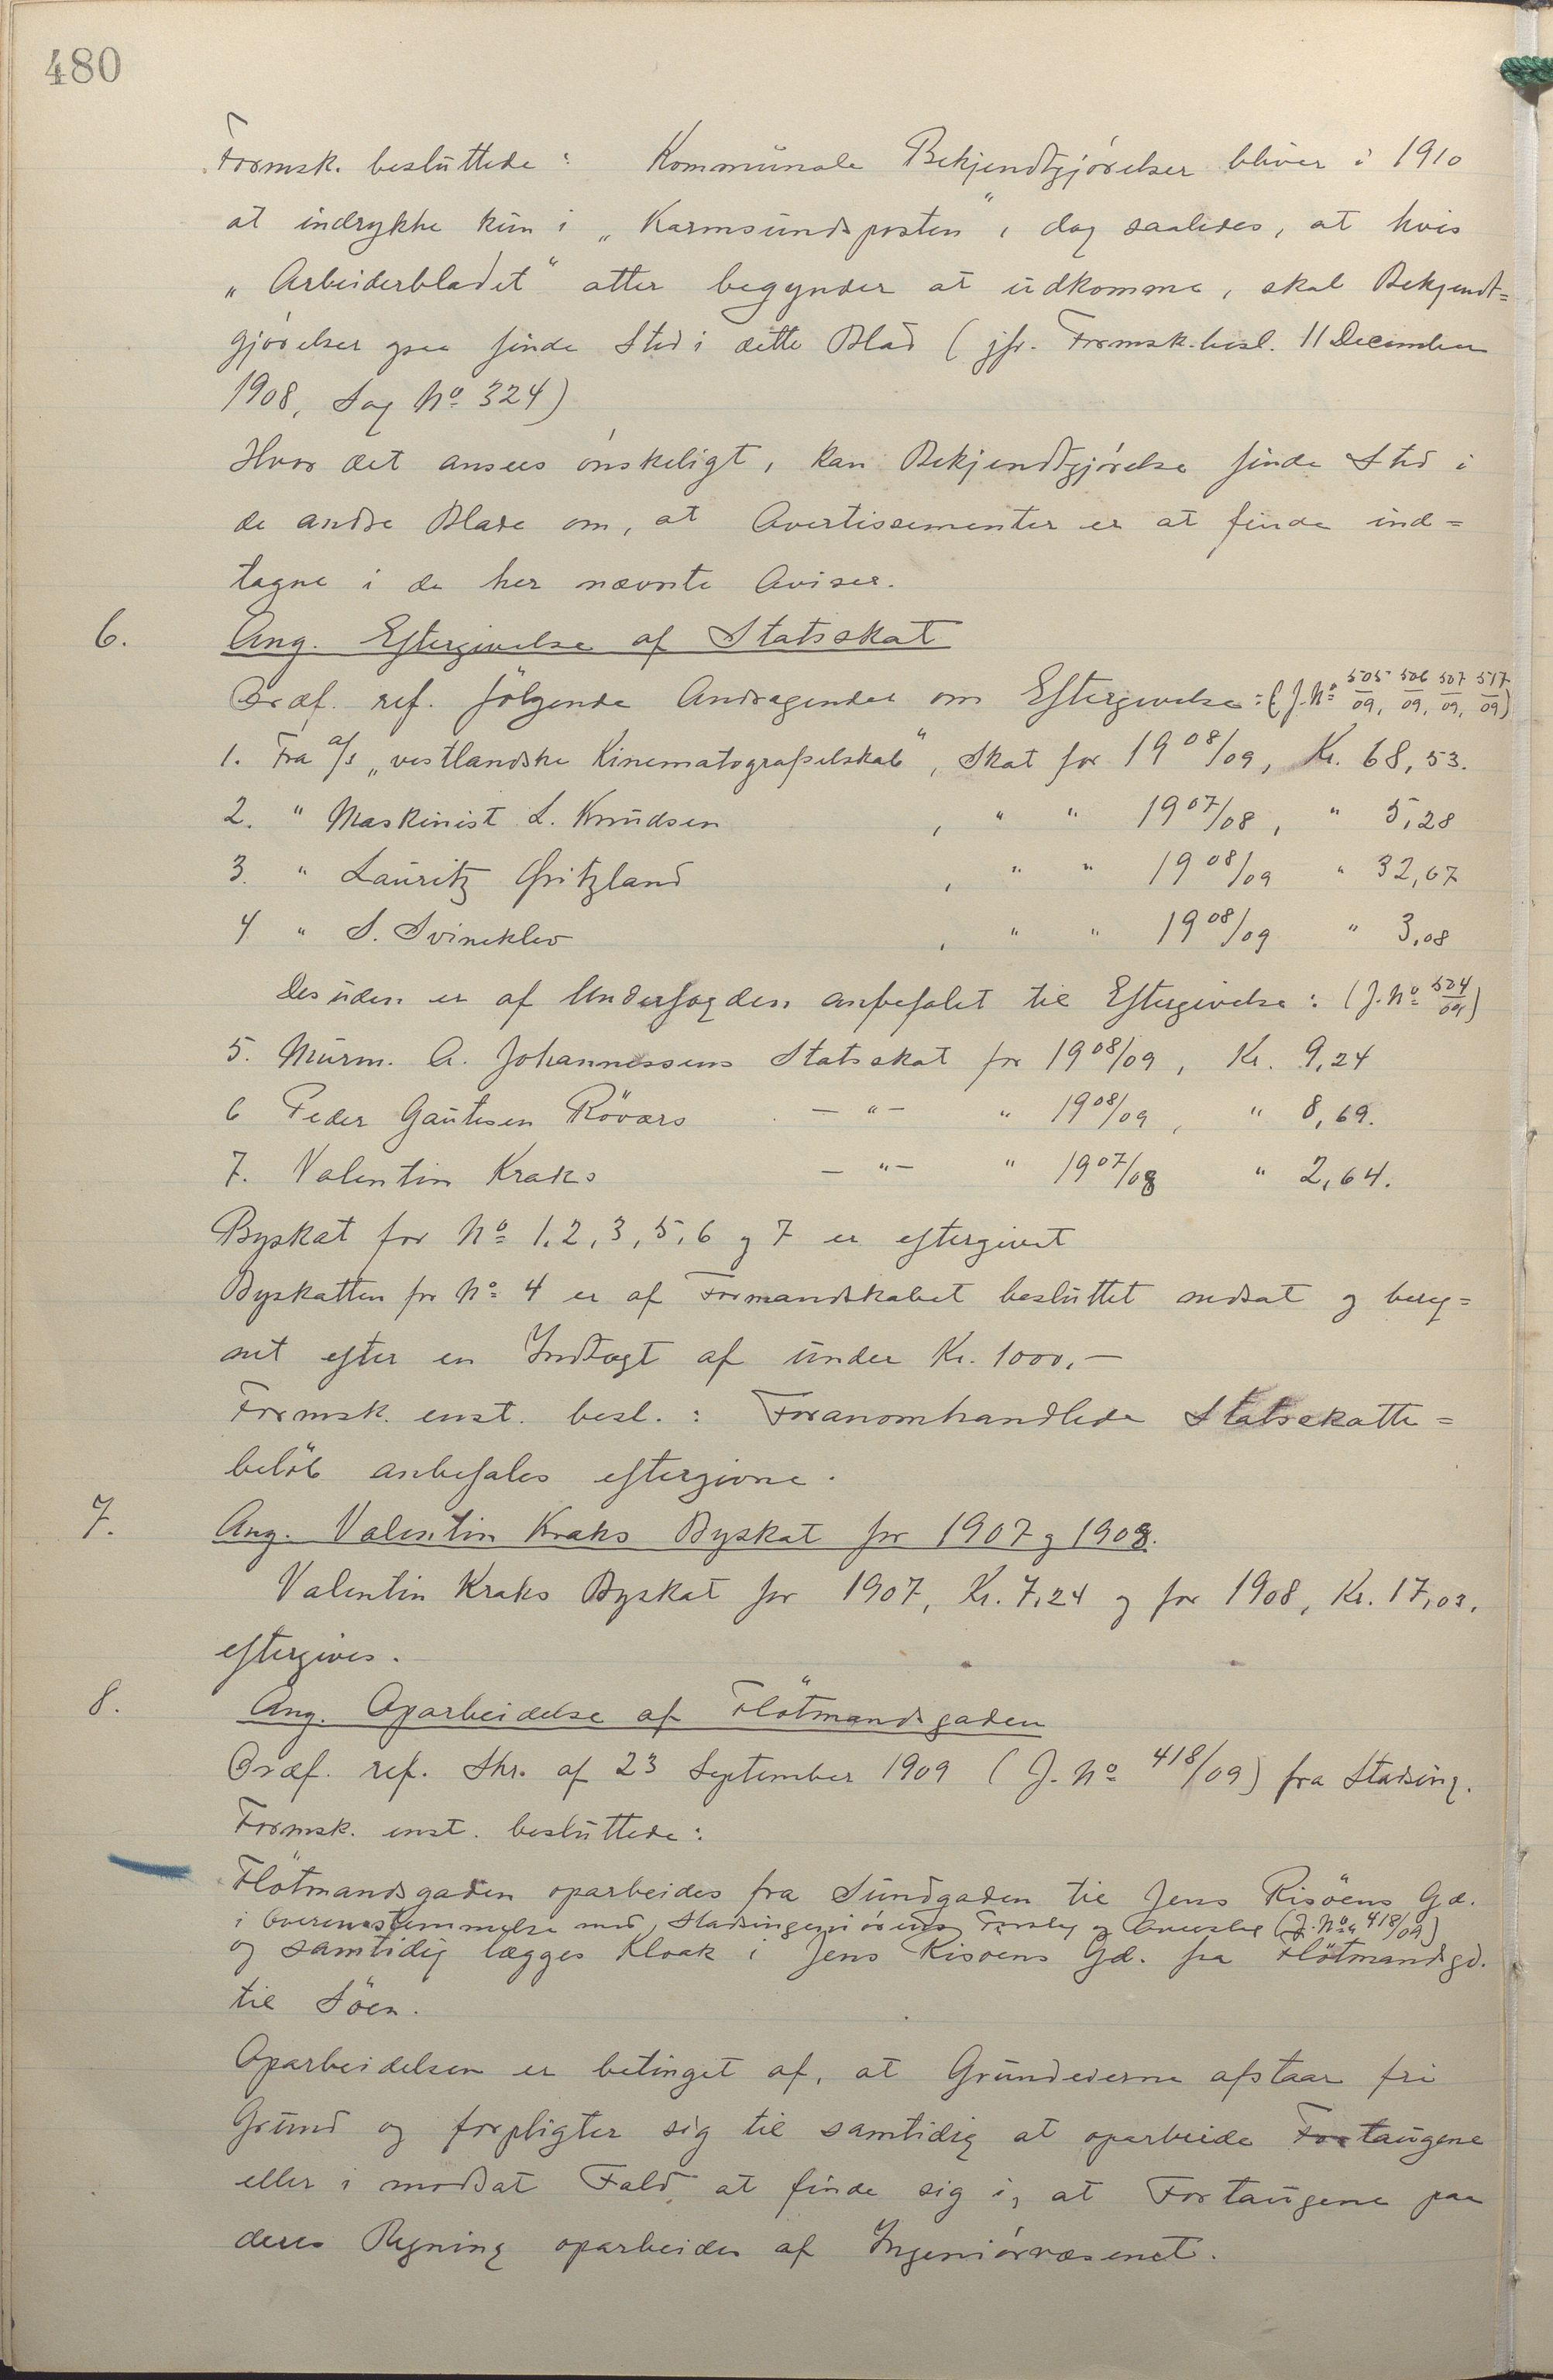 480
Formsk. besluttede : Kommunale Bekjendtgjörelser bliver i 1910
at indrykke kun i „Karmsundsposten", dog saaledes, at hvis
„Arbeiderbladet" atter begynder at udkomme, skal Bekjendt=
gjörelser ogsaa finde Sted i dette Blad (jfr. Formsk. besl. 11 December
1908, Sag No 324)
Hvor det ansees önskeligt, kan Bekjendtgjörelse finde Sted i
de andre Blade om, at Avertissementer er at finde ind=
tagne i de her nævnte Aviser.
6. Ang. Eftergivelse af Statsskat
Ordf. ref. følgende Andragender om Eftergivelse : (J. No 505/09, 506/09, 507/09, 517/09)
1. Fra A/s „vestlandske Kinematografselskab", Skat for 1908/09, Kr. 68,53.
2. " Maskinist L. Knudsen , " " 1907/08, " 5,28
3. " Lauritz Gritzland , " " 1908/09 " 32,67
4 " S. Svineklev , " " 1908/09 " 3,08
Desuden er af Underfogden anbefalet til Eftergivelse : (J. No 504/09)
5. Murm. A. Johannessens Statsskat for 1908/09, Kr. 9,24
6 Peder Gautesen Röværs — " — " 1908/09, " 8,69.
7. Valentin Kraks — " — " 1907/08 " 2,64.
Byskat for No 1, 2, 3, 5, 6 og 7 er eftergivet
Byskatten for No 4 er af Formandskabet besluttet nedsat og bereg=
net efter en Indtægt af under Kr. 1000,—
Formsk. enst. besl. : Foranomhandlede Statsskatte=
belöb anbefales eftergivne.
7. Ang. Valentin Kraks Byskat for 1907 og 1908.
Valentin Kraks Byskat for 1907, Kr. 7,24 og for 1908, Kr. 17,03,
eftergives.
8. Ang. Oparbeidelse af Flötmandsgaden
Ordf. ref. Skr. af 23 September 1909 (J. No 418/09) fra Stadsing.
Formsk. enst. besluttede :
Flötmandsgaden oparbeides fra Sundgaden til Jens Risöens Gd.
i Overensstemmelse med Stadsingeniörens Forslag og Overslag (J. No 418/09)
og samtidig lægges Kloak i Jens Risöens Gd. fra Flötmandsgd.
til Söen.
Oparbeidelsen er betinget af, at Grundeierne afstaar fri
Grund og forpligter sig til samtidig at oparbeide Fortaugene
eller i modsat Fald at finde sig i, at Fortaugene paa
deres Regning oparbeides af Ingeniörvæsenet.